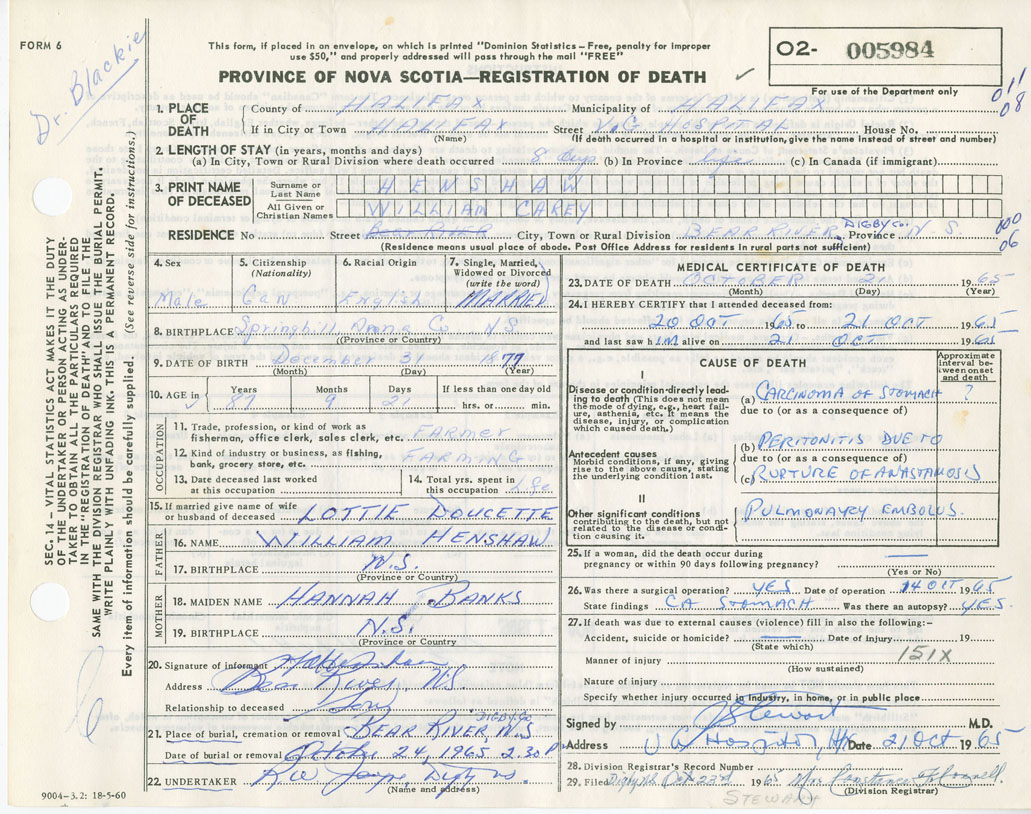 FORM 6
Dr. Blackie
This form, if placed in an envelope, on which is printed "Dominion Statistics – Free, penalty for improper
use $50," and properly addressed will pass through the mail "FREE"
PROVINCE OF NOVA SCOTIA—REGISTRATION OF DEATH ✓
O2- 005984
For use of the Department only
011
08
1. PLACE OF DEATH
County of HALIFAX Municipality of HALIFAX
If in City or Town HALIFAX Street V.G. HOSPITAL House No.
(Name) (If death occurred in a hospital or institution, give the name instead of street and number)
2. LENGTH OF STAY (in years, months and days)
(a) In City, Town or Rural Division where death occurred 8 days (b) In Province life (c) In Canada (if immigrant)
3. PRINT NAME OF DECEASED
Surname or Last Name HENSHAW
All Given or Christian Names WILLIAM CAREY
RESIDENCE No Street BEAR RIVER City, Town or Rural Division BEAR RIVER DIGBY Co. Province N S
06
(Residence means usual place of abode. Post Office Address for residents in rural parts not sufficient)
4. Sex Male
5. Citizenship (Nationality) Can
6. Racial Origin English
7. Single, Married, Widowed or Divorced (write the word) MARRIED
8. BIRTHPLACE Springhill Anna Co NS
(Province or Country)
9. DATE OF BIRTH December 31 1877
(Month) (Day) (Year)
10. AGE in ✓ Years 87 Months 9 Days 21 If less than one day old hrs. or min.
OCCUPATION
11. Trade, profession, or kind of work as
fisherman, office clerk, sales clerk, etc. FARMER
12. Kind of industry or business, as fishing,
bank, grocery store, etc. FARMING
13. Date deceased last worked
at this occupation
14. Total yrs. spent in
this occupation Life
15. If married give name of wife
or husband of deceased LOTTIE DOUCETTE
FATHER
16. NAME WILLIAM HENSHAW
17. BIRTHPLACE N.S.
(Province or Country)
MOTHER
18. MAIDEN NAME HANNAH BANKS
19. BIRTHPLACE N.S.
(Province or Country)
20. Signature of informant Henshaw
Address Bear River, N.S.
Relationship to deceased Son
DIGBY Co
21. Place of burial, cremation or removal BEAR RIVER, N.S
Date of burial or removal October 24, 1965 2.30 P.
22. UNDERTAKER
(Name and address)
9004-3.2: 18-5-60
MEDICAL CERTIFICATE OF DEATH
23. DATE OF DEATH OCTOBER 21 1965
(Month) (Day) (Year)
24. I HEREBY CERTIFY that I attended deceased from:
20 OCT 1965 to 21 OCT 1965
and last saw h IM alive on 21 OCT 1965
CAUSE OF DEATH
Approximate interval between onset and death
I
Disease or condition directly leading to death (This does not mean the mode of dying, e.g., heart failure, asthenia, etc. It means the disease, injury, or complication which caused death.)
(a) CARCINOMA OF STOMACH ?
due to (or as a consequence of)
Antecedent causes
Morbid conditions, if any, giving rise to the above cause, stating the underlying condition last.
(b) PERITONITIS DUE TO
due to (or as a consequence of)
(c) RUPTURE OF ANASTAMOSIS
II
Other significant conditions
contributing to the death, but not related to the disease or condition causing it.
PULMONARY EMBOLUS.
25. If a woman, did the death occur during
pregnancy or within 90 days following pregnancy? —
(Yes or No)
26. Was there a surgical operation? YES Date of operation 14 OCT 1965
State findings CA STOMACH Was there an autopsy? YES.
27. If death was due to external causes (violence) fill in also the following:–
Accident, suicide or homicide? — Date of injury 19
(State which)
151X
Manner of injury
(How sustained)
Nature of injury
Specify whether injury occurred in industry, in home, or in public place
Signed by Stewart M.D.
Address V G Hospital, Hfx Date 21 Oct 1965
28. Division Registrar's Record Number
29. Filed Oct 23rd 1965 Mrs Constance
(Division Registrar)
STEWART
SEC. 14 – VITAL STATISTICS ACT MAKES IT THE DUTY
OF THE UNDERTAKER OR PERSON ACTING AS UNDER-
TAKER TO OBTAIN ALL THE PARTICULARS REQUIRED
IN THE "REGISTRATION OF DEATH" AND TO FILE THE
SAME WITH THE DIVISION REGISTRAR WHO SHALL ISSUE THE BURIAL PERMIT.
WRITE PLAINLY WITH UNFADING INK. THIS IS A PERMANENT RECORD.
Every item of information should be carefully supplied. (See reverse side for instructions.)